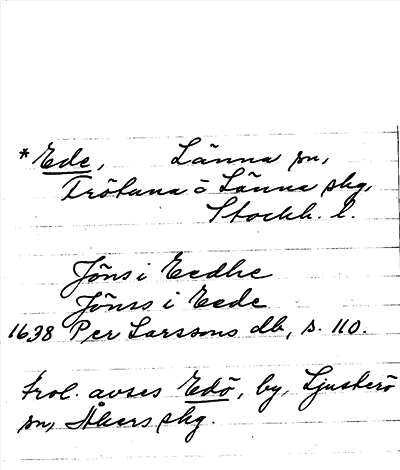 * Ede, Länna sn,
Frötuna o Länna skg,
Stockh. l.
Jöns i Eedhe
Jönss i Eede
1638 Per Larssons db, s. 110.
trol. avses Edö, by, Ljusterö
sn, Åkers skg.